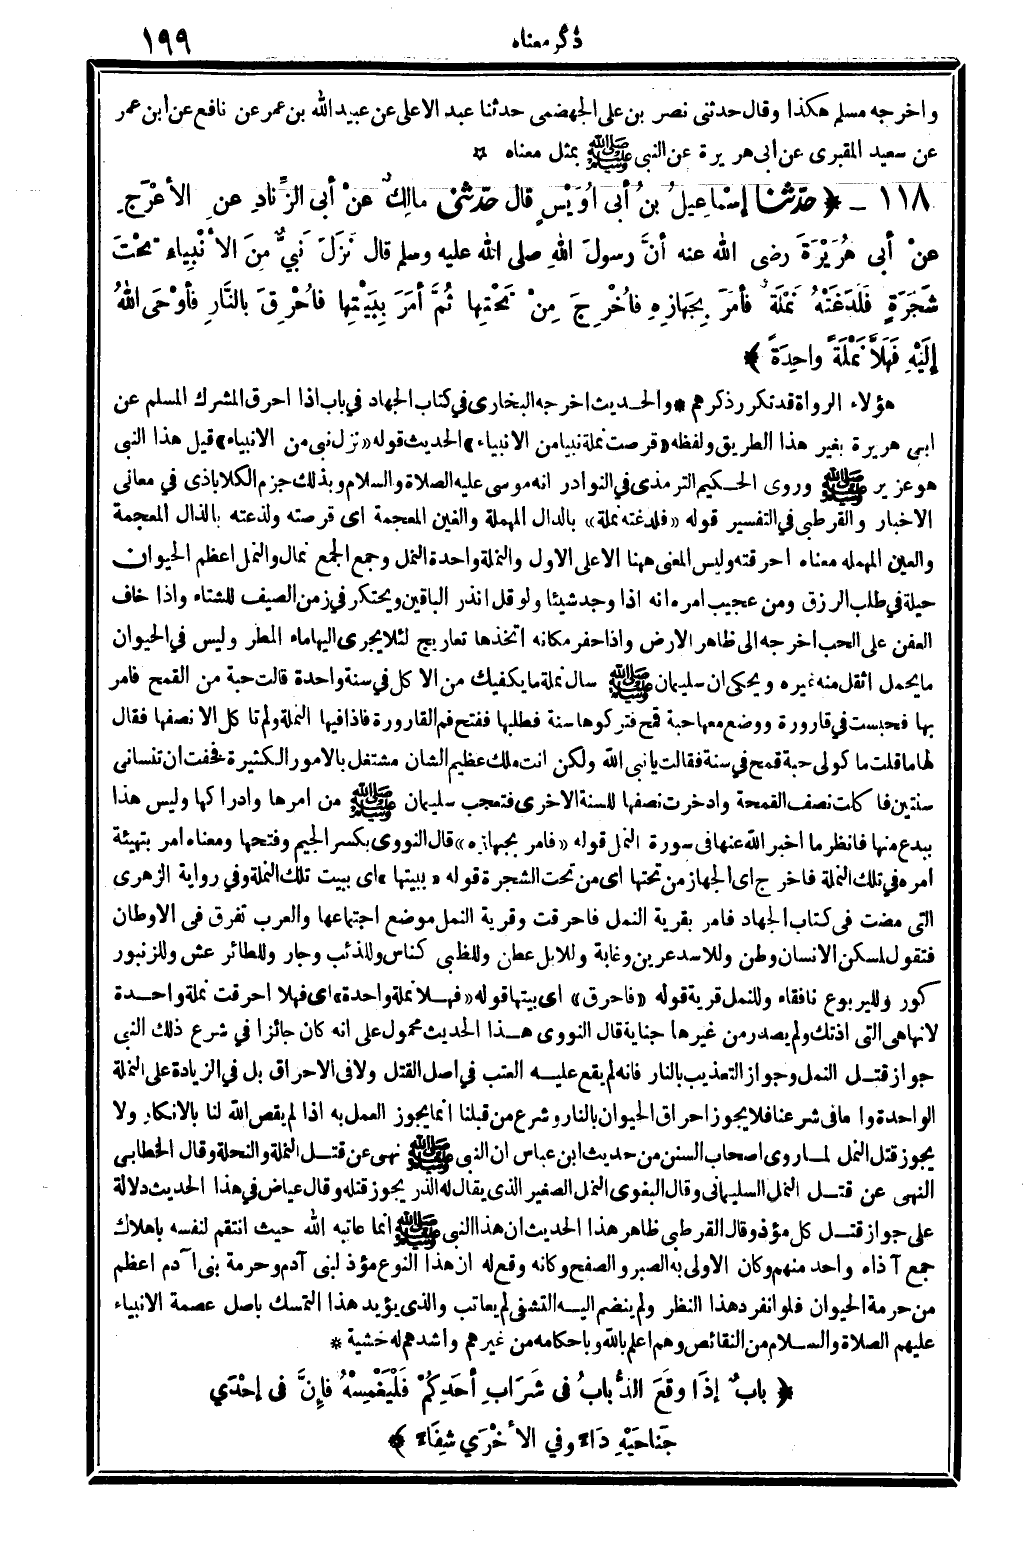 ذكر معناه
١٩٩
واخرجه مسلم هكذا وقال حدثنى نصر بن على الجهضمى حدثنا عبد الاعلى عن عبيد الله بن عمر عن نافع عن ابن عمر
عن سعيد المقبرى عن أبى هريرة عن النبى ﷺ بمثل معناه ☆
١١٨ ـ ﴿ حَدَّثَنا إسْماعِيلُ بنُ أبى أُوَيْسٍ قال حَدَّثنى مالِكٌ عنْ أبى الزِّنادِ عنِ الأعْرَجِ
عنْ أبى هُرَيْرَةَ رضى الله عنه أنَّ رسولَ اللهِ صلى الله عليه وسلم قال نَزَلَ نَبِيٌّ مِنَ الأنْبِياءِ تَحْتَ
شَجَرَةٍ فَلَدَغَتْهُ نَمْلَةٌ فأمَرَ بِجَهازِهِ فأُخْرِجَ مِنْ تَحْتِها ثُمَّ أمَرَ بِبَيْتِها فأُحْرِقَ بالنَّارِ فأوْحَى اللهُ
إلَيْهِ فَهَلاَّ نَمْلَةً واحِدَةً ﴾
هؤلاء الرواة قد تكرر ذكرهم * والحديث اخرجه البخارى في كتاب الجهاد في باب اذا احرق المشرك المسلم عن
ابى هريرة بغير هذا الطريق ولفظه «قرصت نملة نبيا من الانبياء» الحديث قوله «نزل نبى من الانبياء» قيل هذا النبى
هو عزير ﷺ وروى الحكيم الترمذى في النوادر انه موسى عليه الصلاة والسلام وبذلك جزم الكلاباذى في معانى
الاخبار والقرطبى في التفسير قوله «فلدغته نملة» بالدال المهملة والغين المعجمة اى قرصته ولذعته بالذال المعجمة
والعين المهمله معناه احرقته وليس المعنى ههنا الا على الاول والنملة واحدة النمل وجمع الجمع نمال والنمل اعظم الحيوان
حيلة في طلب الرزق ومن عجيب امره انه اذا وجد شيئا ولو قل انذر الباقين ويحتكر في زمن الصيف للشتاء واذا خاف
العفن على الحب اخرجه الى ظاهر الارض واذا حفر مكانه اتخذها تعاريج لئلا يجرى اليها ماء المطر وليس في الحيوان
ما يحمل اثقل منه غيره ويحكى ان سليمان ﷺ سال نملة ما يكفيك من الاكل في سنة واحدة قالت حبة من القمح فامر
بها فحبست في قارورة ووضع معها حبة قمح فتركوها سنة فطلبها ففتح فم القارورة فاذا فيها النملة ولم تاكل الا نصفها فقال
لها ما قلت ماكولى حبة قمح في سنة فقالت يا نبى الله ولكن انت ملك عظيم الشان مشتغل بالامور الكثيرة فخفت ان تنسانى
سنتين فاكلت نصف القمحة وادخرت نصفها للسنة الاخرى فتعجب سليمان ﷺ من امرها وادراكها وليس هذا
ببدع منها فانظر ما اخبر الله عنها فى سورة النمل قوله «فامر بجهازه» قال النووى بكسر الجيم وفتحها ومعناه امر بتهيئة
امره في تلك النملة فاخرج اى الجهاز من تحتها اى من تحت الشجرة قوله «ببيتها» اى ببيت تلك النملة وفي رواية الزهرى
التى مضت فى كتاب الجهاد فامر بقرية النمل فاحرقت وقرية النمل موضع اجتماعها والعرب تفرق فى الاوطان
فتقول لمسكن الانسان وطن وللاسد عرين وغابة وللابل عطن وللظبى كناس وللذئب وجار وللطائر عش وللزنبور
كور ولليربوع نافقاء وللنمل قرية قوله «فاحرق» اى بيتها قوله «فهلا نملة واحدة» اى فهلا احرقت نملة واحدة
لانها هى التى اذتك ولم يصدر من غيرها جناية قال النووى هذا الحديث محمول على انه كان جائزا في شرع ذلك النبى
جواز قتل النمل وجواز التعذيب بالنار فانه لم يقع عليه العتب في اصل القتل ولا فى الاحراق بل في الزيادة على النملة
الواحدة واما فى شرعنا فلا يجوز احراق الحيوان بالنار وشرع من قبلنا انما يجوز العمل به اذا لم يقص الله لنا بالانكار ولا
يجوز قتل النمل لما روى اصحاب السنن من حديث ابن عباس ان النبى ﷺ نهى عن قتل النملة والنحلة وقال الخطابى
النهى عن قتل النمل السليمانى وقال البغوى النمل الصغير الذى يقال له الذر يجوز قتله وقال عياض في هذا الحديث دلالة
على جواز قتل كل مؤذ وقال القرطبى ظاهر هذا الحديث ان هذا النبى ﷺ انما عاتبه الله حيث انتقم لنفسه باهلاك
جمع آذاه واحد منهم وكان الاولى به الصبر والصفح وكانه وقع له ان هذا النوع مؤذ لبنى آدم وحرمة بنى آدم اعظم
من حرمة الحيوان فلو انفرد هذا النظر ولم ينضم اليه التشفى لم يعاتب والذى يؤيد هذا التمسك باصل عصمة الانبياء
عليهم الصلاة والسلام من النقائص وهم اعلم بالله وباحكامه من غيرهم واشدهم له خشية *
﴿ بابٌ إذَا وقَعَ الذُّبابُ فى شَرَابِ أحَدِكُمْ فَلْيَغْمِسْهُ فإنَّ فى إحْدَي
جَناحَيْهِ دَاءً وفي الأُخْرَي شِفَاءً ﴾